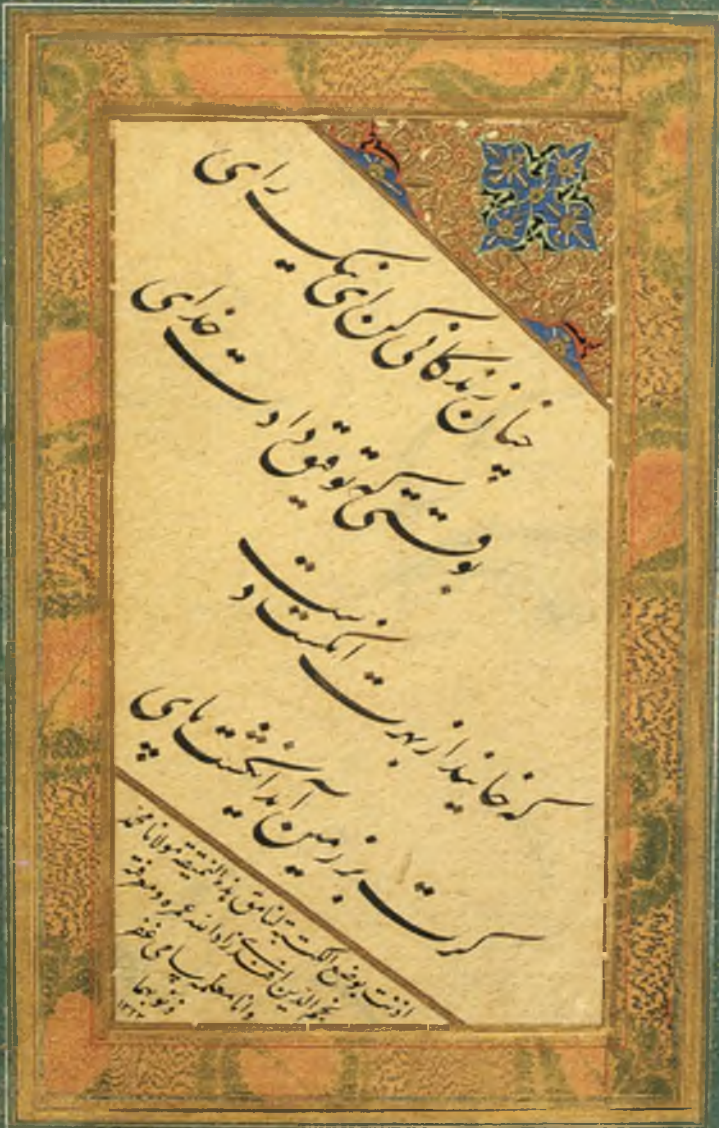 چنان زندگانی کن ای نیک رای
بوقتی که توفیق دادت خدای
که خایند از بهرت انگشت دست
گرت بر زمین آید انگشت پای
اذنت بوضع الکتبة لنامق هذه النمیقة مولانا محمد
نجم الدین افندی زاد الله عمره ومعرفته
وانا معلمه سامی غفر
ذنوبهما
١٣٢٢